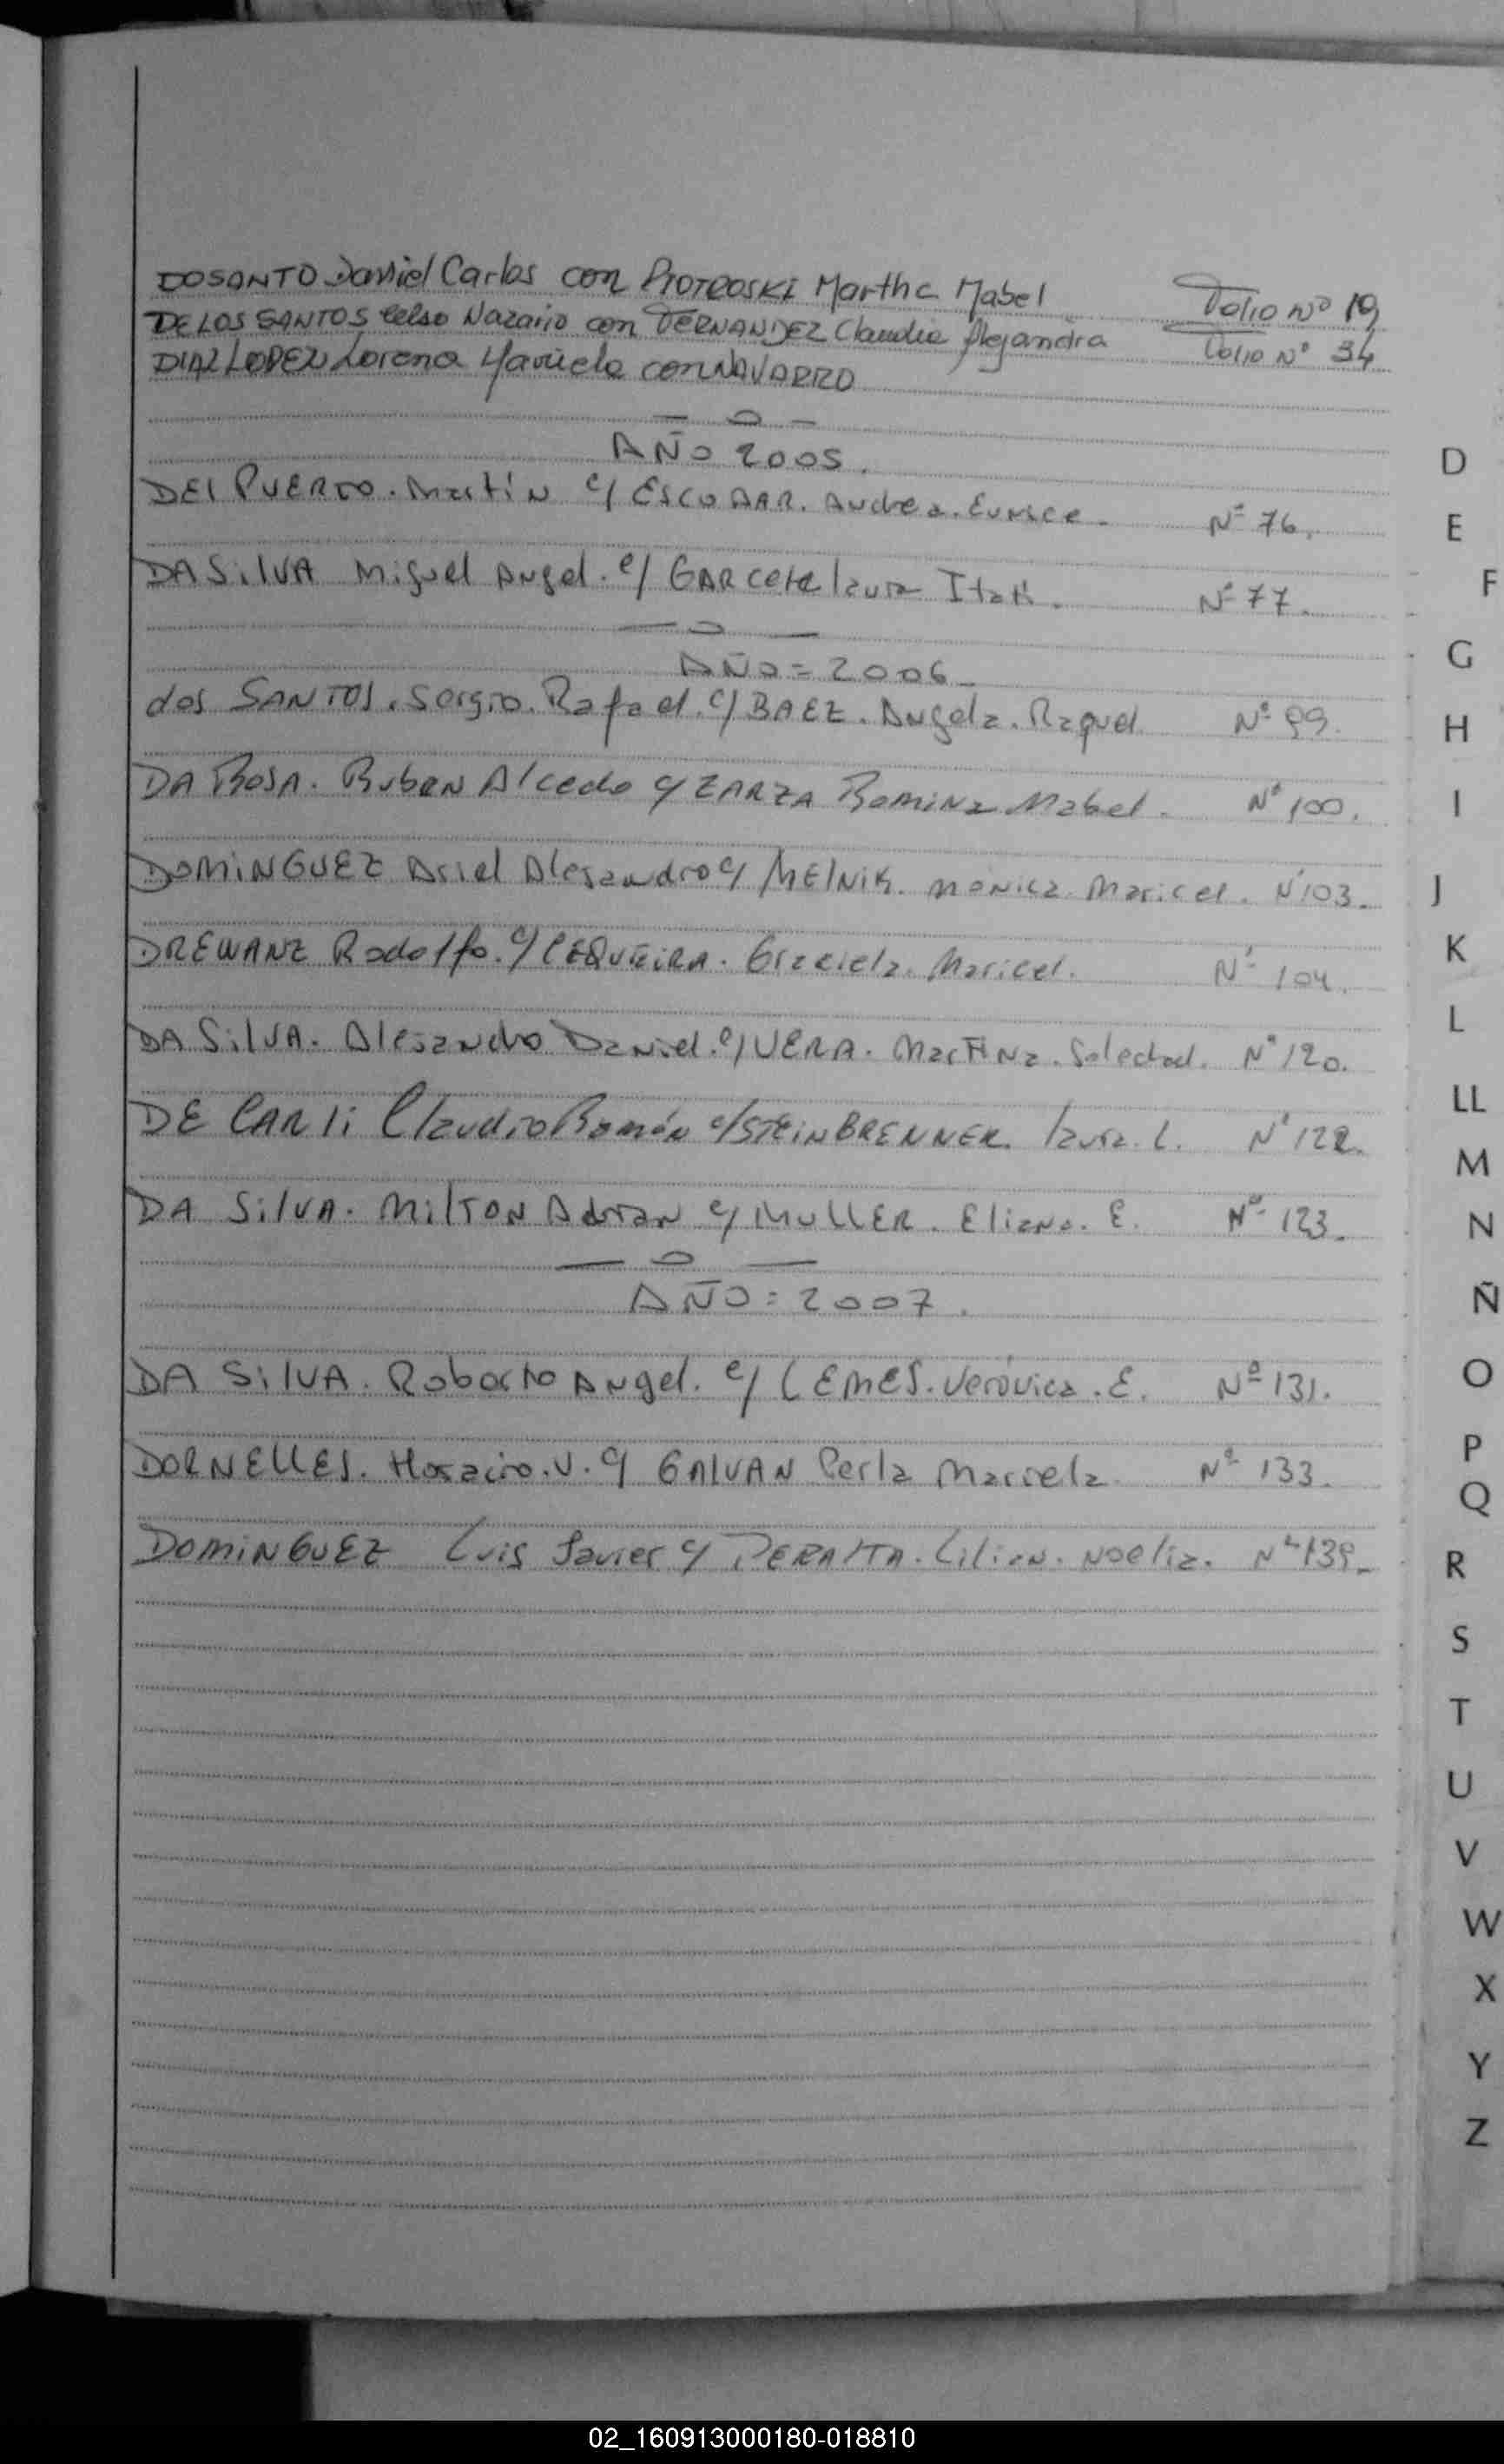 DOSANTO Daniel Carlos con PIOTROSKI Martha Mabel Folio Nº 19
DE LOS SANTOS Celso Nazario con FERNANDEZ Claudia Alejandra Folio Nº 34
DIAZ LOPEZ Lorena Mariela con NAVARRO
— o —
AÑO 2005.
DEl PUERTO. Martín c/ ESCOBAR. Andrea. Eunice. Nº 76.
DA SilVA Miguel Angel. c/ GARCETE laura Itatí. Nº 77.
— o —
AÑO = 2006
dos SANTOS. Sergio. Rafael. c/ BAEZ. Angela. Raquel. Nº 99.
DA ROSA. Ruben Alcedo c/ ZARZA Romina Mabel. Nº 100.
DOMiNGUEZ Ariel Alejandro c/ MElNiK. Mónica Maricel. Nº 103.
DREWANZ Rodolfo. c/ CEQUEiRA. Graciela. Maricel. Nº 104.
DA SilVA. Alejandro Daniel. c/ VERA. Martina. Soledad. Nº 120.
DE CARli Claudio Román c/ STEiNBRENNER. laura. L. Nº 122.
DA SilVA. MilTON Adrian c/ MULLER. Eliana. E. Nº 123.
— o —
AÑO = 2007.
DA SilVA. Roberto Angel. c/ LEMES. Verónica. E. Nº 131.
DORNELLES. Horacio. V. c/ GAlVAN Perla Marcela. Nº 133.
DOMiNGUEZ Luis Javier c/ PERAlTA. Lilian. Noelia. Nº 139.
D
E
F
G
H
I
J
K
L
LL
M
N
Ñ
O
P
Q
R
S
T
U
V
W
X
Y
Z
02_160913000180-018810